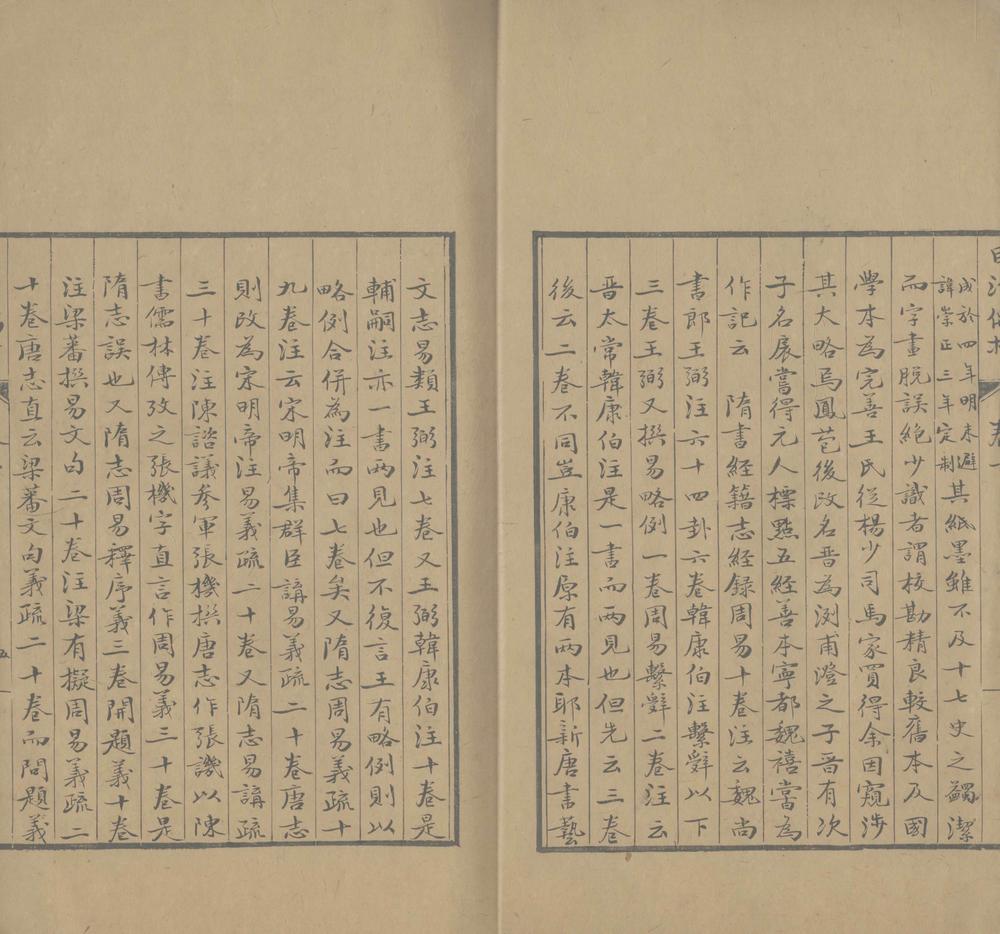 成於四年明末避
諱崇正三年定制
其紙墨雖不及十七史之蠲潔
而字畫脱誤絶少識者謂校勘精良較舊本及國
學本為完善王氏從楊少司馬家買得余因窺涉
其大略焉鳳苞後改名晋為浏甫澄之子晋有次
子名扆嘗得元人標㸃五經善本寧都魏禧嘗為
作記云　隋書經籍志經録周易十卷注云魏尚
書郎王弼注六十四卦六卷韓康伯注繫辭以下
三卷王弼又撰易略例一卷周易繫辭二卷注云
晋太常韓康伯注是一書而兩見也但先云三卷
後云二卷不同豈康伯注原有兩本耶新唐書藝
文志易類王弼注七卷又王弼韓康伯注十卷是
輔嗣注亦一書兩見也但不復言王有略例則以
略例合併為注而曰七卷矣又隋志周易義疏十
九卷注云宋明帝集群臣講易義疏二十卷唐志
則改為宋明帝注易義疏二十卷又隋志易講疏
三十卷注陳諮議參軍張機撰唐志作張譏以陳
書儒林傳攷之張機字直言作周易義三十卷是
隋志誤也又隋志周易釋序義三卷開題義十卷
注梁蕃撰易文句二十卷注梁有擬周易義疏二
十卷唐志直云梁蕃文句義疏二十卷而問題義